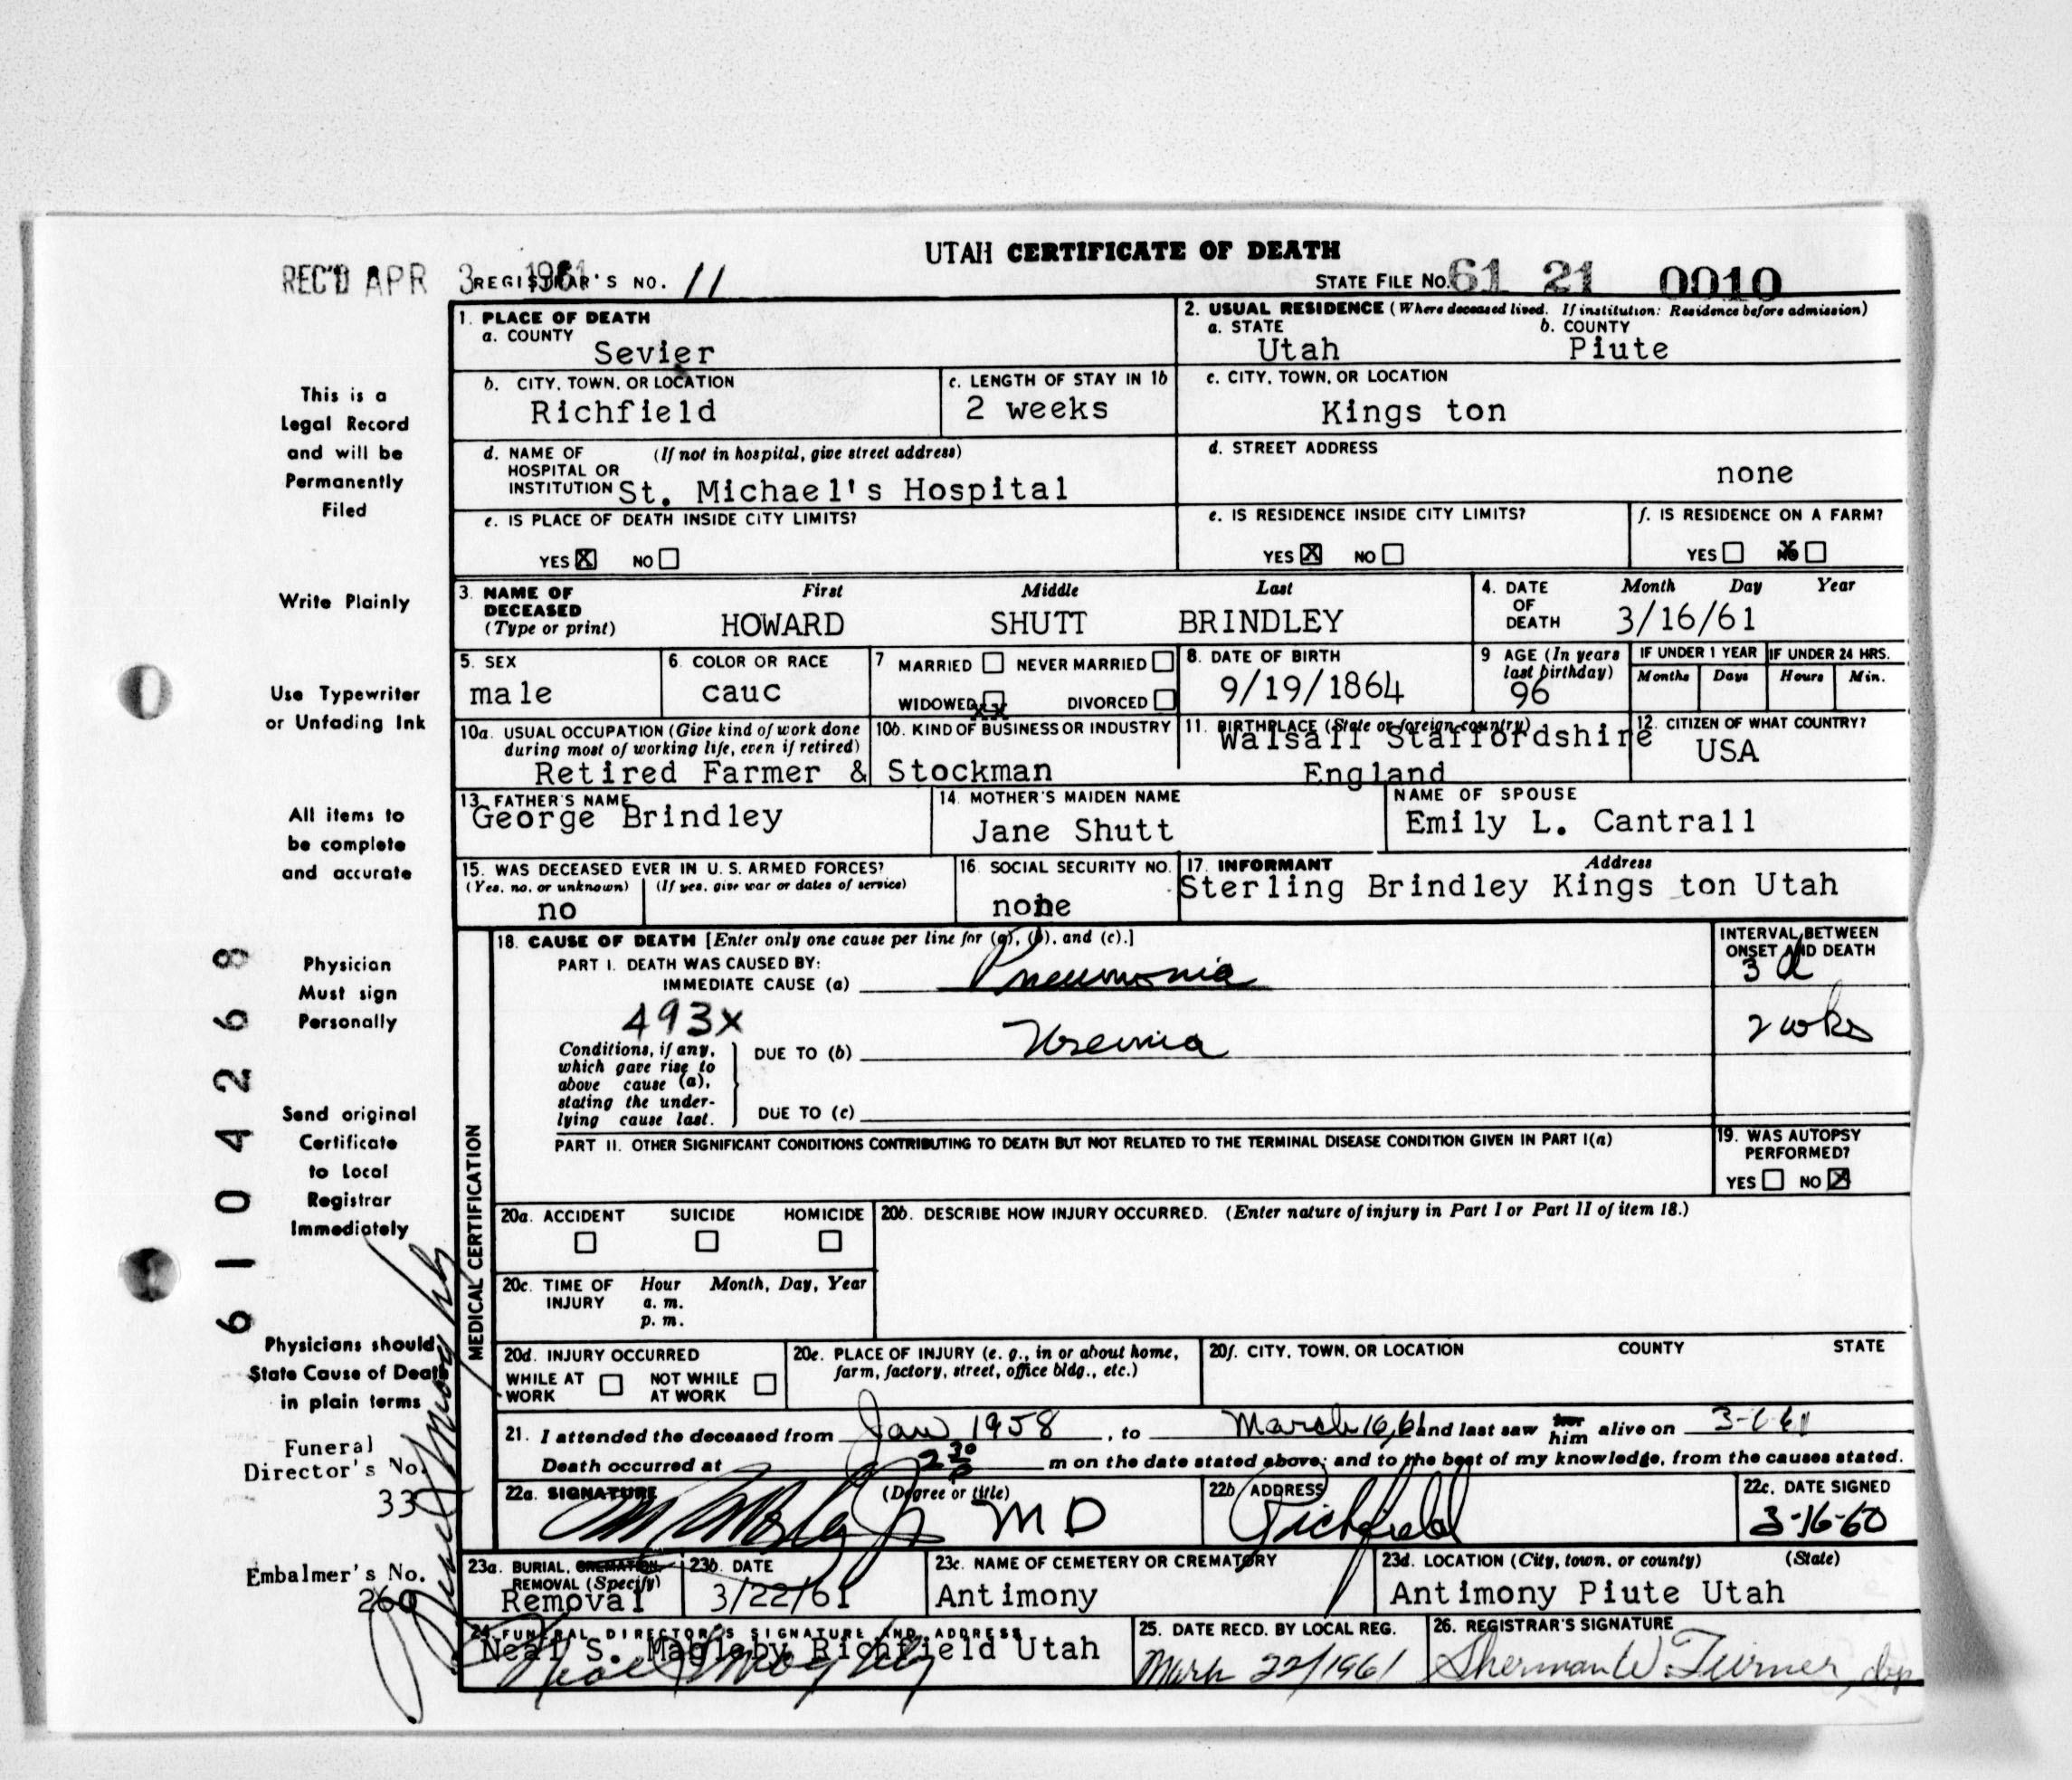 UTAH CERTIFICATE OF DEATH
REC'D APR 3 1961 REGISTRAR'S NO. 11 STATE FILE NO. 61 21 0010
1. PLACE OF DEATH
a. COUNTY
Sevier
2. USUAL RESIDENCE (Where deceased lived. If institution: Residence before admission)
a. STATE b. COUNTY
Utah Piute
b. CITY, TOWN, OR LOCATION
Richfield
c. LENGTH OF STAY IN 1b
2 weeks
c. CITY, TOWN, OR LOCATION
Kings ton
d. NAME OF (If not in hospital, give street address)
HOSPITAL OR
INSTITUTION St. Michael's Hospital
d. STREET ADDRESS
none
e. IS PLACE OF DEATH INSIDE CITY LIMITS?
YES X NO
e. IS RESIDENCE INSIDE CITY LIMITS?
YES X NO
f. IS RESIDENCE ON A FARM?
YES NO X
3. NAME OF DECEASED (Type or print) First Middle Last
HOWARD SHUTT BRINDLEY
4. DATE OF DEATH Month Day Year
3/16/61
5. SEX
male
6. COLOR OR RACE
cauc
7 MARRIED NEVER MARRIED
WIDOWED xx DIVORCED
8. DATE OF BIRTH
9/19/1864
9 AGE (In years last birthday)
96
IF UNDER 1 YEAR IF UNDER 24 HRS.
Months Days Hours Min.
10a. USUAL OCCUPATION (Give kind of work done
during most of working life, even if retired)
10b. KIND OF BUSINESS OR INDUSTRY
Retired Farmer & Stockman
11. BIRTHPLACE (State or foreign country)
Walsall Staffordshire
England
12. CITIZEN OF WHAT COUNTRY?
USA
13. FATHER'S NAME
George Brindley
14. MOTHER'S MAIDEN NAME
Jane Shutt
NAME OF SPOUSE
Emily L. Cantrall
15. WAS DECEASED EVER IN U. S. ARMED FORCES?
(Yes, no, or unknown) (If yes, give war or dates of service)
no
16. SOCIAL SECURITY NO.
none
17. INFORMANT Address
Sterling Brindley Kings ton Utah
MEDICAL CERTIFICATION
18. CAUSE OF DEATH [Enter only one cause per line for (a), (b), and (c).]
INTERVAL BETWEEN
ONSET AND DEATH
PART I. DEATH WAS CAUSED BY:
IMMEDIATE CAUSE (a) Pneumonia 3 d
493x
Conditions, if any,
which gave rise to
above cause (a),
stating the under-
lying cause last.
DUE TO (b) Uremia 2 wks
DUE TO (c)
PART II. OTHER SIGNIFICANT CONDITIONS CONTRIBUTING TO DEATH BUT NOT RELATED TO THE TERMINAL DISEASE CONDITION GIVEN IN PART I(a)
19. WAS AUTOPSY
PERFORMED?
YES NO X
20a. ACCIDENT SUICIDE HOMICIDE
20b. DESCRIBE HOW INJURY OCCURRED. (Enter nature of injury in Part I or Part II of item 18.)
20c. TIME OF INJURY Hour Month, Day, Year
a. m.
p. m.
20d. INJURY OCCURRED
WHILE AT WORK NOT WHILE AT WORK
20e. PLACE OF INJURY (e. g., in or about home,
farm, factory, street, office bldg., etc.)
20f. CITY, TOWN, OR LOCATION COUNTY STATE
21. I attended the deceased from Jan 1958, to March 16, 61 and last saw him alive on
Death occurred at 2 30 p m on the date stated above; and to the best of my knowledge, from the causes stated.
22a. SIGNATURE (Degree or title)
M D
22b. ADDRESS
Richfield
22c. DATE SIGNED
3-16-60
23a. BURIAL, CREMATION,
REMOVAL (Specify)
Removal
23b. DATE
3/22/61
23c. NAME OF CEMETERY OR CREMATORY
Antimony
23d. LOCATION (City, town, or county) (State)
Antimony Piute Utah
24. FUNERAL DIRECTOR'S SIGNATURE AND ADDRESS
Neal S. Magleby Richfield Utah
Neal S Magleby
25. DATE RECD. BY LOCAL REG.
March 22/1961
26. REGISTRAR'S SIGNATURE
Sherman W. Turner, dep
This is a
Legal Record
and will be
Permanently
Filed
Write Plainly
Use Typewriter
or Unfading Ink
All items to
be complete
and accurate
Physician
Must sign
Personally
Send original
Certificate
to Local
Registrar
Immediately
Physicians should
State Cause of Death
in plain terms
Funeral
Director's No.
33
Embalmer's No.
260
Neal S Magleby
6104268